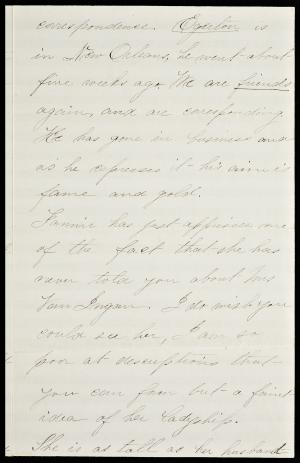 correspondence. Overton is
in New Orleans, he went about
five weeks ago. We are friends
again, and are coresponding
He has gone in business and
as he expresses it - his aim is
fame and gold.
Fannie has just apprised me
of the fact that she has
never told you about Mrs
Van Ingan. I do wish you
could see her, I am so
poor at descriptions that
you can form but a faint
idea of her Ladyship.
She is as tall as her husband